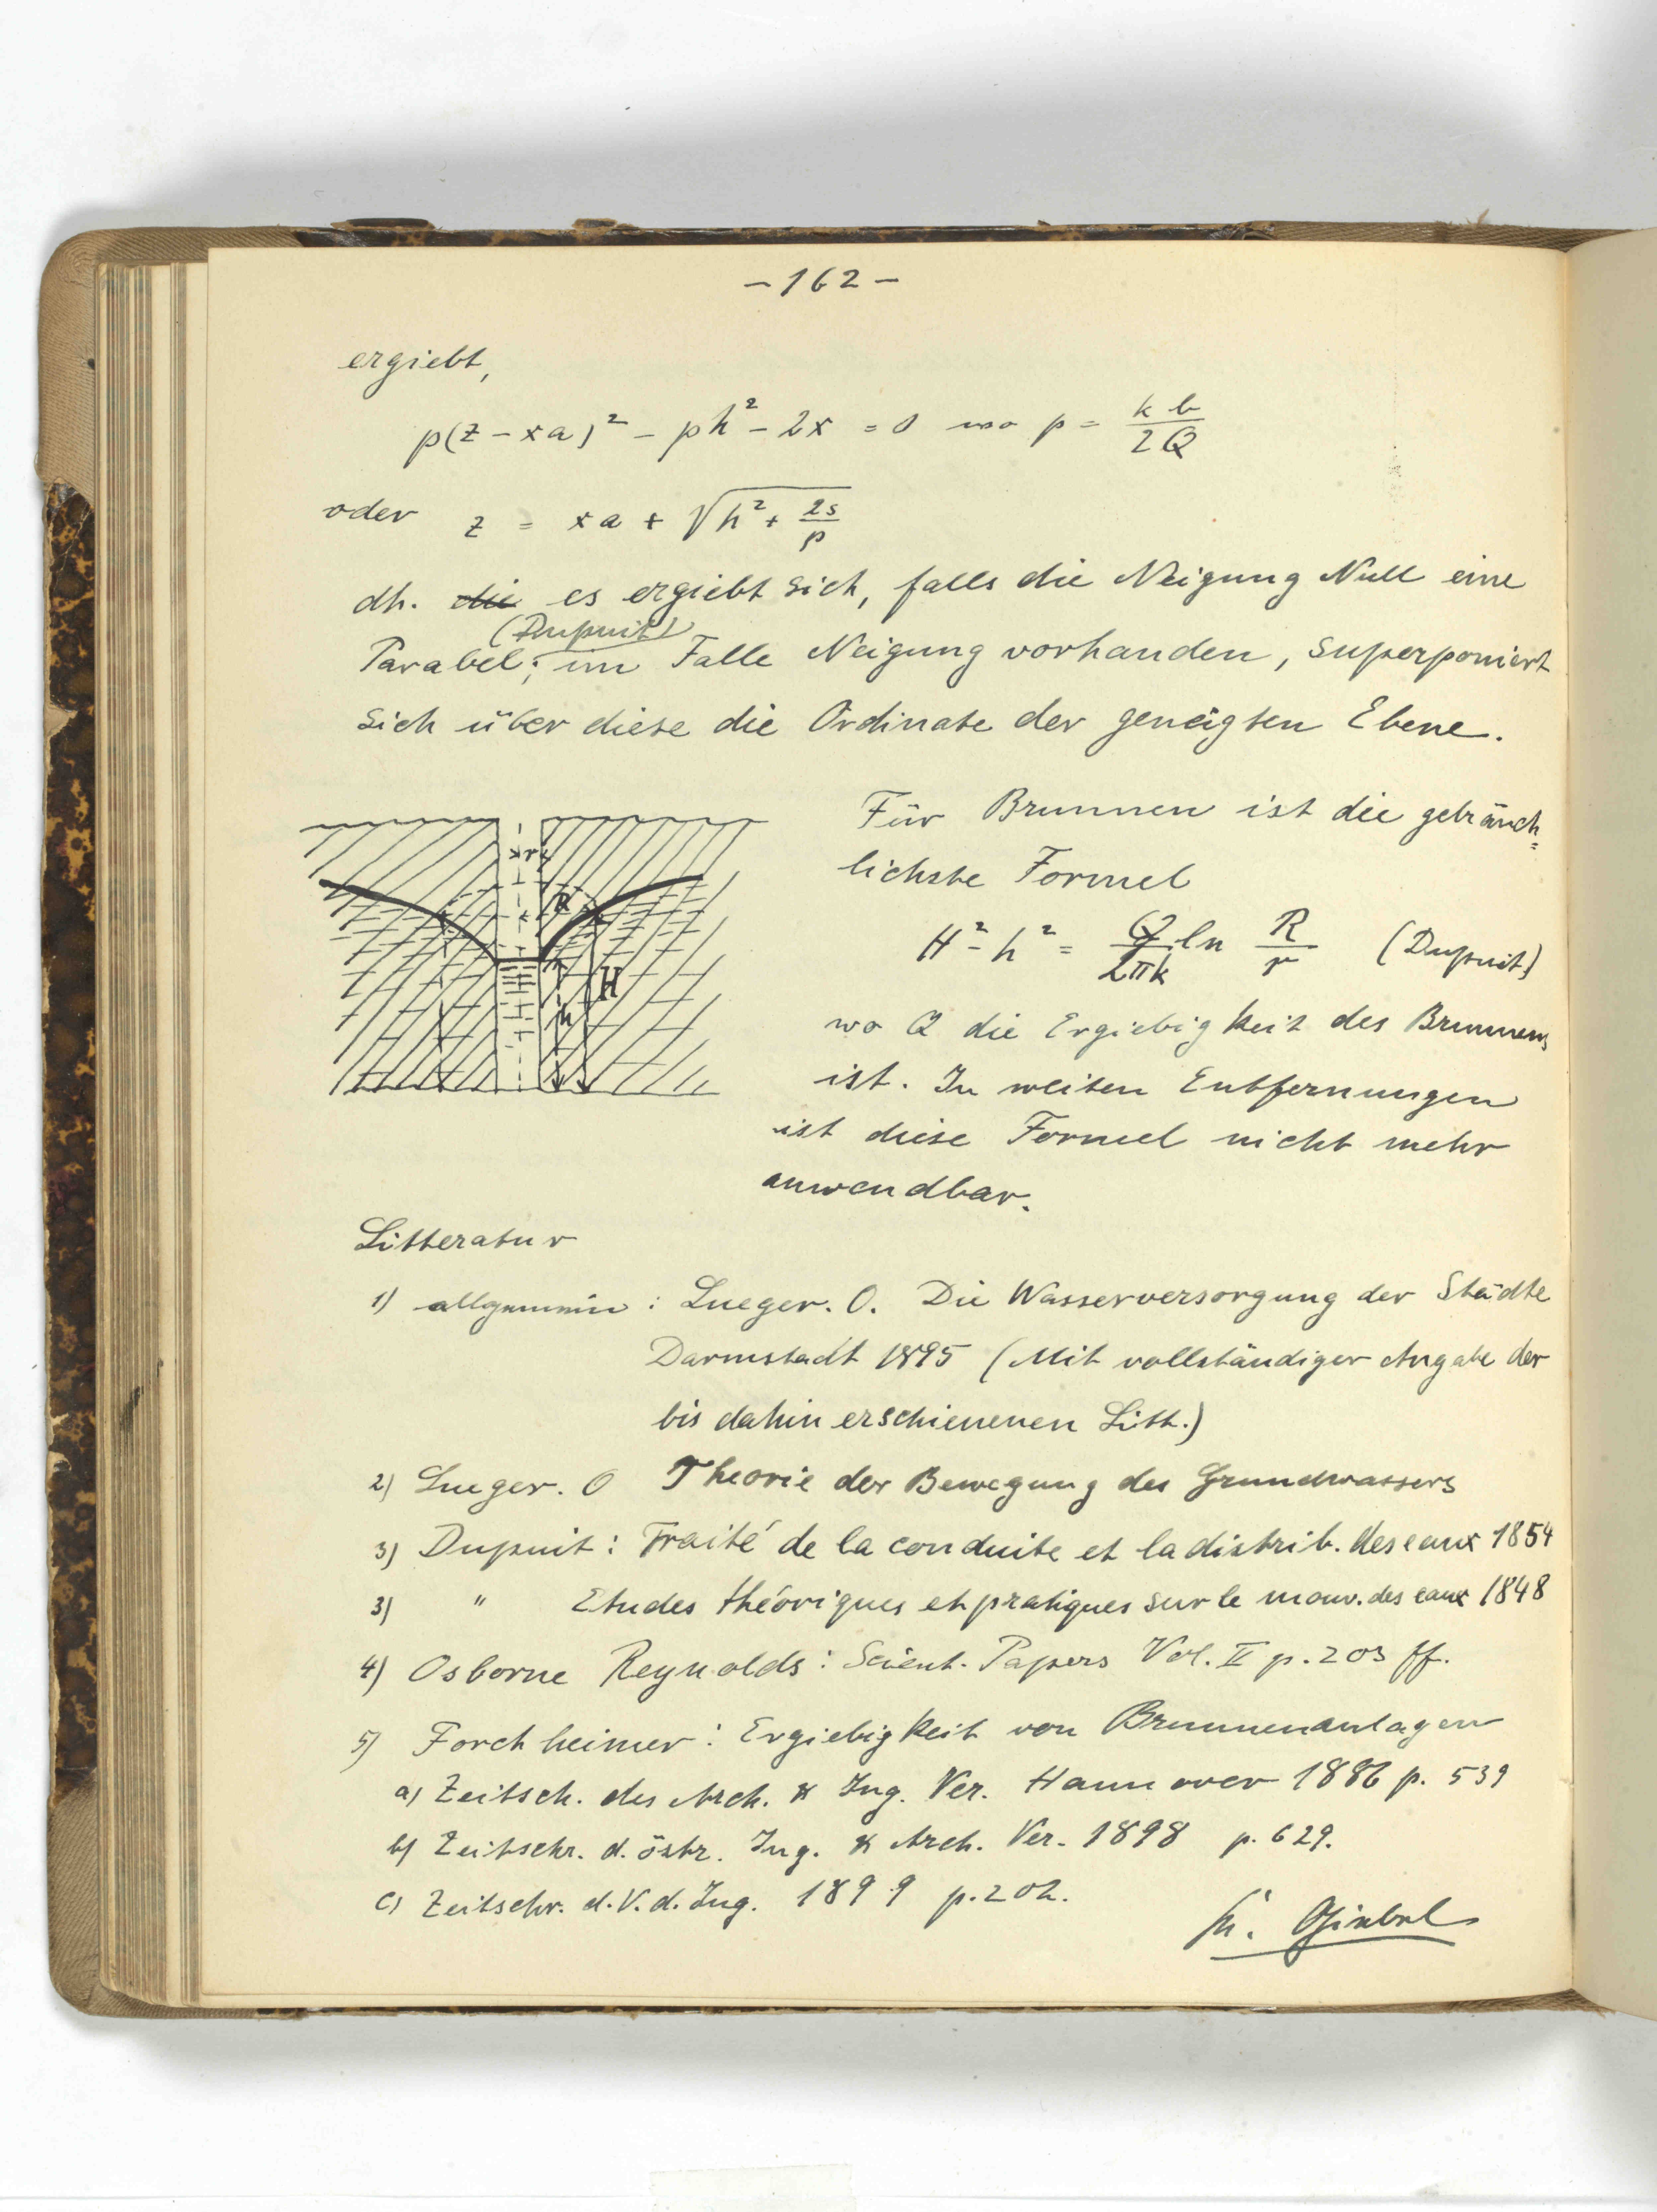 – 162 –
ergiebt,
p(z – xa)² – ph² – 2x = 0 wo p = kb/2Q
oder z = xa + √(h² + 2s/p)
dh. die es ergiebt sich, falls die Neigung Null eine
(Dupuit)
Parabel; im Falle Neigung vorhanden, superponiert
sich über diese die Ordinate der geneigten Ebene.
Für Brunnen ist die gebräuch=
lichste Formel
H² – h² = Q/2πk ln R/r (Dupuit)
wo Q die Ergiebigkeit des Brunnens
ist. In weiten Entfernungen
ist diese Formel nicht mehr
anwendbar.
r
R
H
h
Litteratur
1) allgemein : Lueger. O. Die Wasserversorgung der Städte
Darmstadt 1895 (Mit vollständiger Angabe der
bis dahin erschienenen Litt.)
2) Lueger. O Theorie der Bewegung des Grundwassers
3) Dupuit : Traité de la conduite et la distrib. des eaux 1854
3) " Etudes théoriques et pratiques sur le mouv. des eaux 1848
4) Osborne Reynolds : Scient. Papers Vol. II p. 203 ff.
5) Forchheimer : Ergiebigkeit von Brunnenanlagen
a) Zeitsch. des Arch. & Ing. Ver. Hannover 1886 p. 539
b) Zeitschr. d. östr. Ing. & Arch. Ver. 1898 p. 629.
c) Zeitschr. d. V. d. Ing. 1899 p. 202.